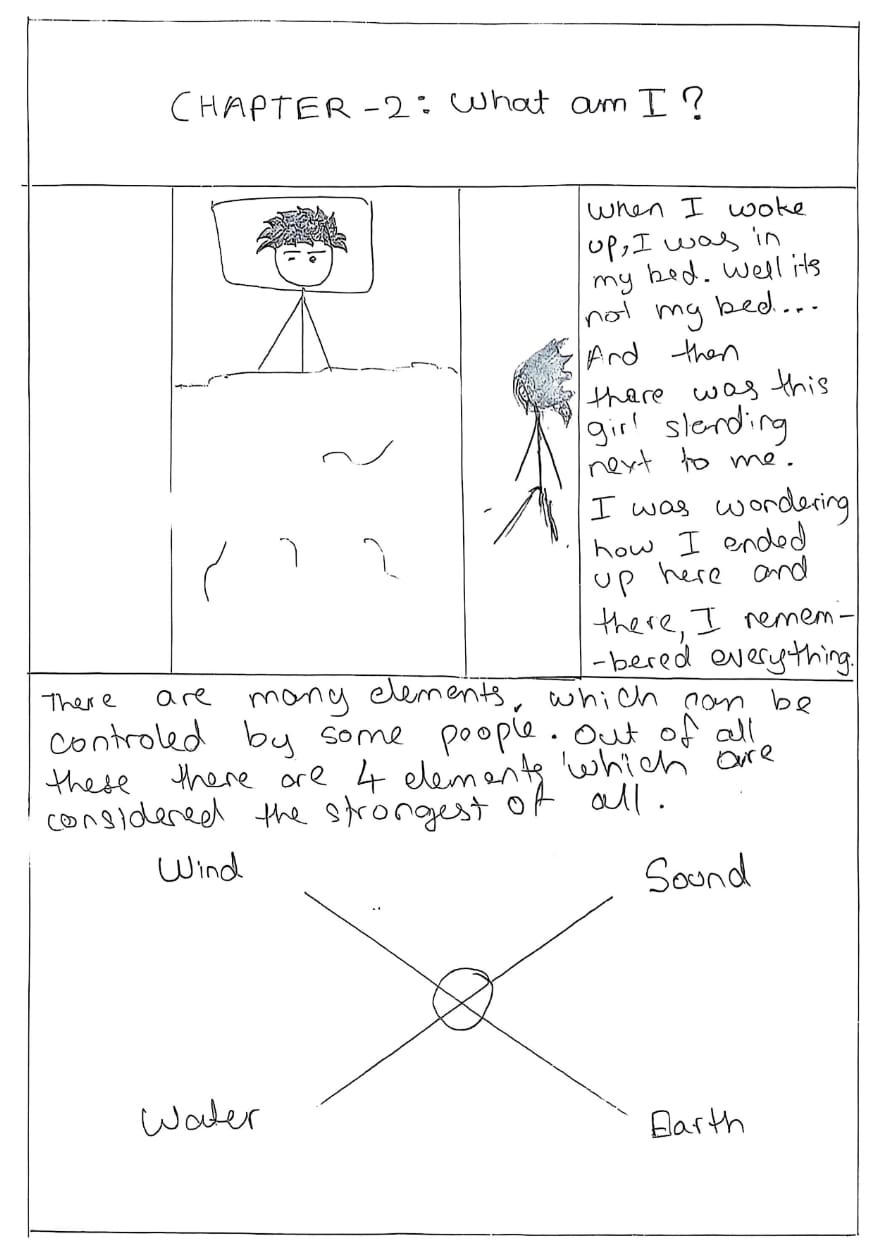 CHAPTER -2: What am I?
When I woke
up, I was in
my bed. Well its
not my bed...
And then
thare was this
girl stending
next to me.
I was wordering
how I ended
up here and
there, I remem-
-bered everything.
There are many elements, which can be
controled by some poople. Out of all
these there are 4 elements which are
considered the strongest of all.
Wind
Sound
Water
Earth